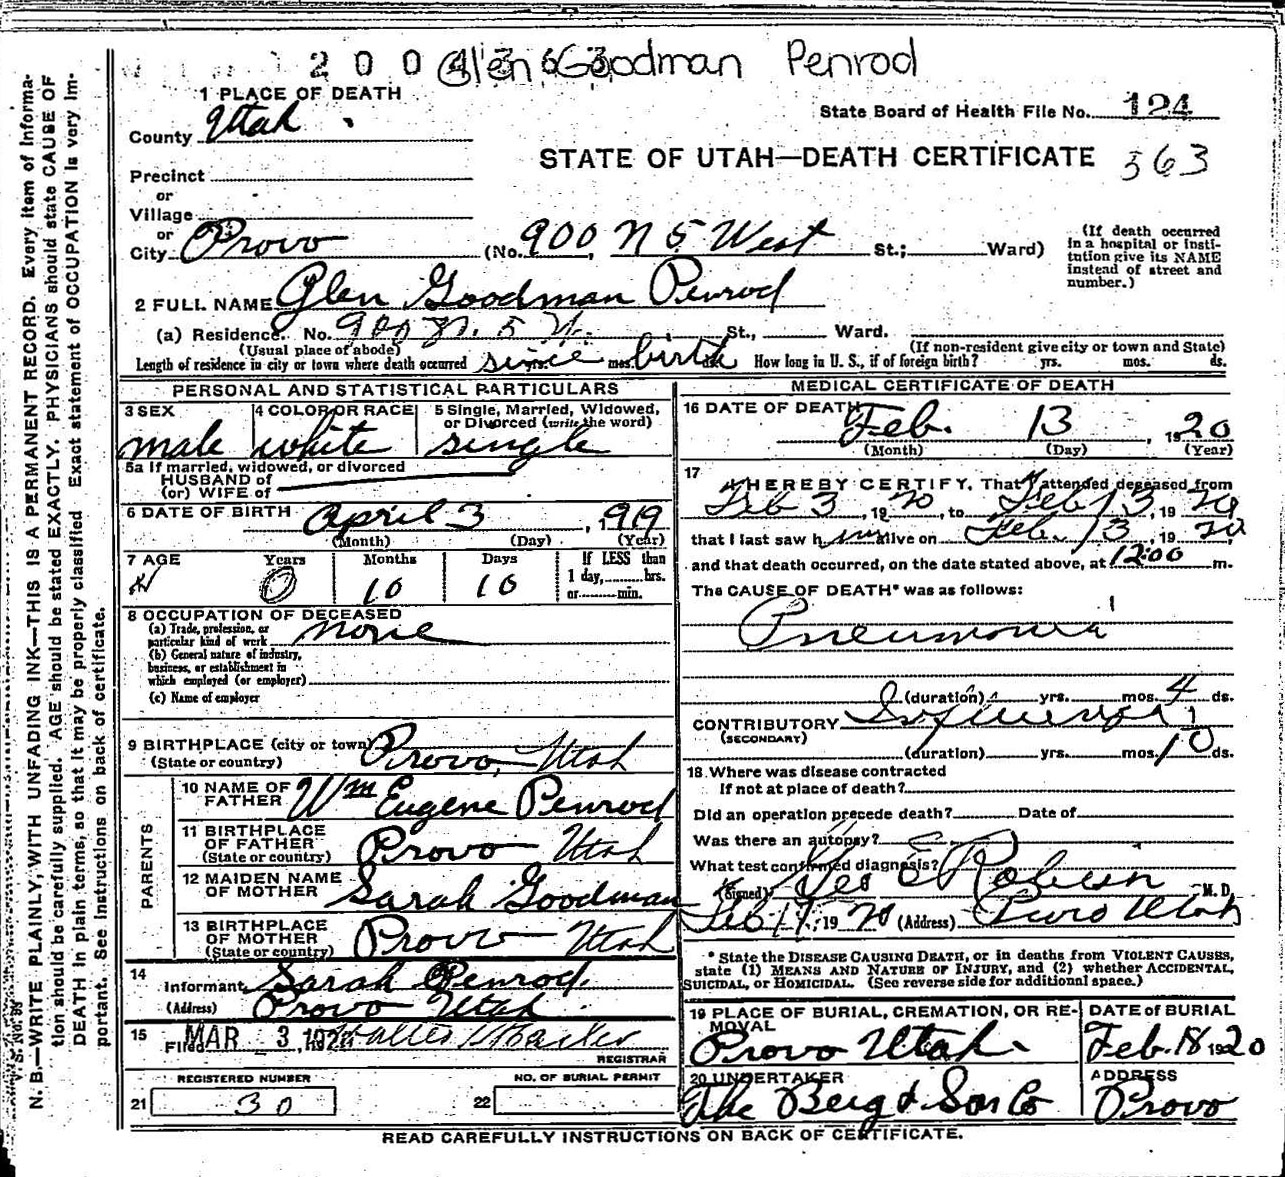 2 0 0 4 3 6 3 Glen Goodman Penrod
1 PLACE OF DEATH
State Board of Health File No. 124
County Utah
STATE OF UTAH—DEATH CERTIFICATE 363
Precinct
or
Village
or
City Provo (No. 900 N 5 West St.; Ward)
(If death occurred in a hospital or institution give its NAME instead of street and number.)
2 FULL NAME Glen Goodman Penrod
(a) Residence. No. 900 N. 5 W. St., Ward.
(Usual place of abode) (If non-resident give city or town and State)
Length of residence in city or town where death occurred since yrs. mos. birth ds. How long in U. S., if of foreign birth? yrs. mos. ds.
PERSONAL AND STATISTICAL PARTICULARS
3 SEX 4 COLOR OR RACE 5 Single, Married, Widowed, or Divorced (write the word)
male white single
5a If married, widowed, or divorced
HUSBAND of
(or) WIFE of
6 DATE OF BIRTH April 3, 1919
(Month) (Day) (Year)
7 AGE Years Months Days If LESS than
0 10 10 1 day, hrs.
or min.
8 OCCUPATION OF DECEASED
(a) Trade, profession, or
particular kind of work none
(b) General nature of industry,
business, or establishment in
which employed (or employer)
(c) Name of employer
9 BIRTHPLACE (city or town) Provo, Utah
(State or country)
PARENTS
10 NAME OF FATHER Wm Eugene Penrod
11 BIRTHPLACE OF FATHER Provo Utah
(State or country)
12 MAIDEN NAME OF MOTHER Sarah Goodman
13 BIRTHPLACE OF MOTHER Provo Utah
(State or country)
14 Informant Sarah Penrod
(Address) Provo Utah
15 Filed MAR 3, 1920
REGISTRAR
REGISTERED NUMBER NO. OF BURIAL PERMIT
21 30 22
MEDICAL CERTIFICATE OF DEATH
16 DATE OF DEATH Feb. 13, 1920
(Month) (Day) (Year)
17 I HEREBY CERTIFY, That I attended deceased from
Feb 3, 1920, to Feb 13, 1920
that I last saw him alive on Feb. 13, 1920
and that death occurred, on the date stated above, at 12:00 m.
The CAUSE OF DEATH* was as follows:
Pneumonia
(duration) yrs. mos. 4 ds.
CONTRIBUTORY Influenza
(SECONDARY)
(duration) yrs. mos. 10 ds.
18 Where was disease contracted
If not at place of death?
Did an operation precede death? Date of
Was there an autopsy?
What test confirmed diagnosis?
(Signed) M. D.
Feb 17, 1920 (Address) Provo Utah
* State the DISEASE CAUSING DEATH, or in deaths from VIOLENT CAUSES,
state (1) MEANS AND NATURE OF INJURY, and (2) whether ACCIDENTAL,
SUICIDAL, or HOMICIDAL. (See reverse side for additional space.)
19 PLACE OF BURIAL, CREMATION, OR REMOVAL DATE of BURIAL
Provo Utah Feb. 18 1920
20 UNDERTAKER ADDRESS
The Berg & Son Co Provo
READ CAREFULLY INSTRUCTIONS ON BACK OF CERTIFICATE.
V. S. No. 99
N. B.—WRITE PLAINLY, WITH UNFADING INK—THIS IS A PERMANENT RECORD. Every item of informa-
tion should be carefully supplied. AGE should be stated EXACTLY. PHYSICIANS should state CAUSE OF
DEATH in plain terms, so that it may be properly classified. Exact statement of OCCUPATION is very im-
portant. See instructions on back of certificate.